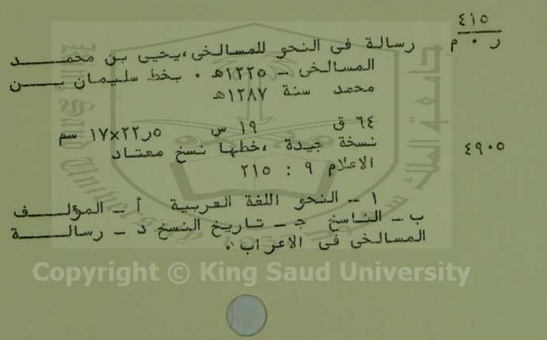 ٤١٥
ر ٠ م
رسالة فى النحو للمسالخى،يحيى بن محمد
المسالخى – ١٢٢٥ه ٠ بخط سليمان بن
محمد سنة ١٢٨٧ه
٦٤ ق ١٩ س ٢٢٫٥×١٧ سم
٤٩٠٥
نسخة جيدة ،خطها نسخ معتاد
الاعلام ٩ : ٢١٥
١ – النحو اللغة العربية أ – المؤلف
ب – الناسخ ج – تاريخ النسخ د – رسالة
المسالخى فى الاعراب ٠
Copyright © King Saud University